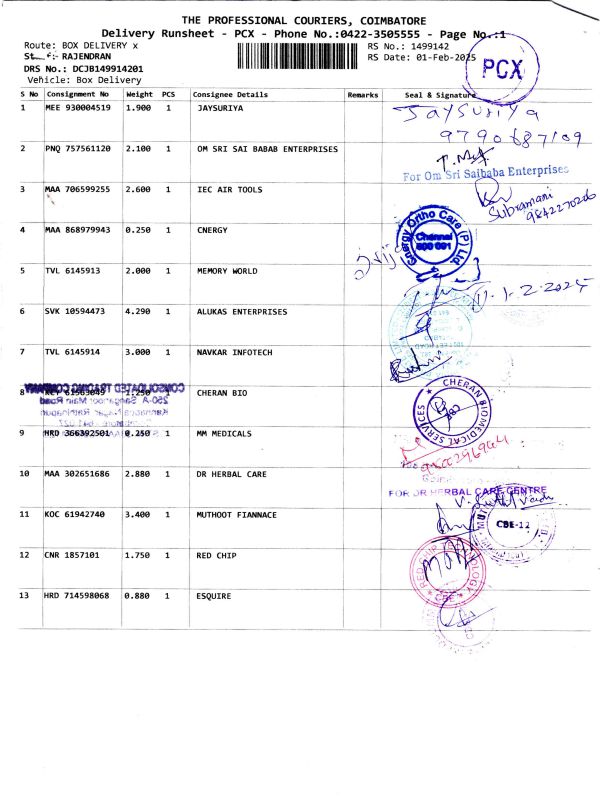 THE PROFESSIONAL COURIERS, COIMBATORE
Delivery Runsheet - PCX - Phone No.:0422-3505555 - Page No.:1
Route: BOX DELIVERY x
RS No.: 1499142
RAJENDRAN
RS Date: 01-Feb-2025
DRS No.: DCJB149914201
Vehicle: Box Delivery
PCX
S No Consignment No Weight PCS Consignee Details Remarks Seal & Signature
1 MEE 930004519 1.900 1 JAYSURIYA
Jaysuriya
9790687109
2 PNQ 757561120 2.100 1 OM SRI SAI BABAB ENTERPRISES
For Om Sri Saibaba Enterprises
3 MAA 706599255 2.600 1 IEC AIR TOOLS
Subramani
9842270206
4 MAA 868979943 0.250 1 CNERGY
Cnergy Ortho Care (P) Ltd.
Chennai
600 001
5 TVL 6145913 2.000 1 MEMORY WORLD
1.2.2025
6 SVK 10594473 4.290 1 ALUKAS ENTERPRISES
7 TVL 6145914 3.000 1 NAVKAR INFOTECH
8 1.250 1 CHERAN BIO
CONSOLIDATED TRADING COMPANY
Sanganoor Main Road
CHERAN BIOMEDICAL SERVICES
9 HRD 366392501 0.250 1 MM MEDICALS
10 MAA 302651686 2.880 1 DR HERBAL CARE
FOR DR HERBAL CARE CENTRE
11 KOC 61942740 3.400 1 MUTHOOT FIANNACE
CBE-12
12 CNR 1857101 1.750 1 RED CHIP
RED CHIP TECHNOLOGY
CBE
13 HRD 714598068 0.880 1 ESQUIRE